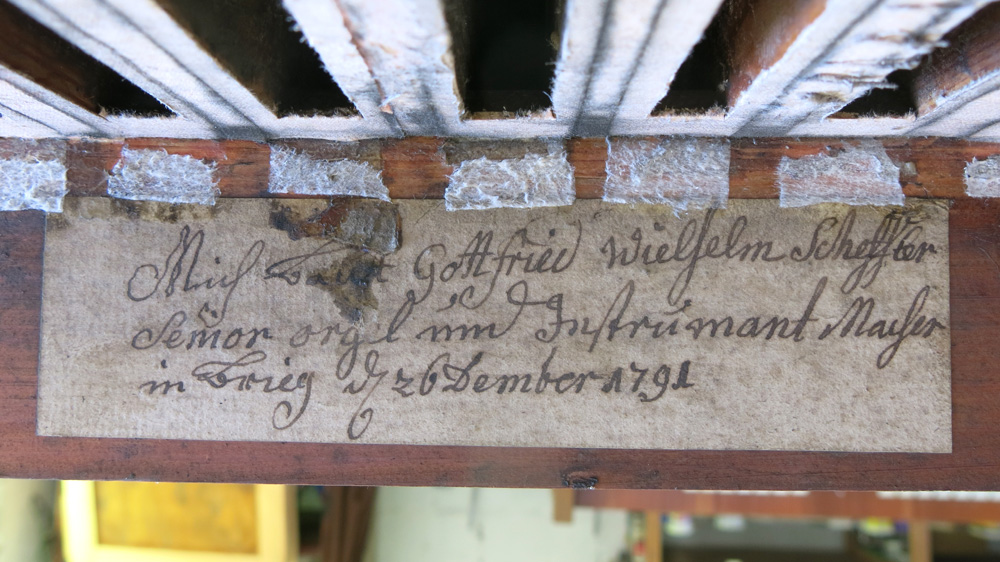 Mich baut Gottfried Wielhelm Scheffler
Senior orgel und Instrumant Macher
in Brieg d 26 Dember 1791